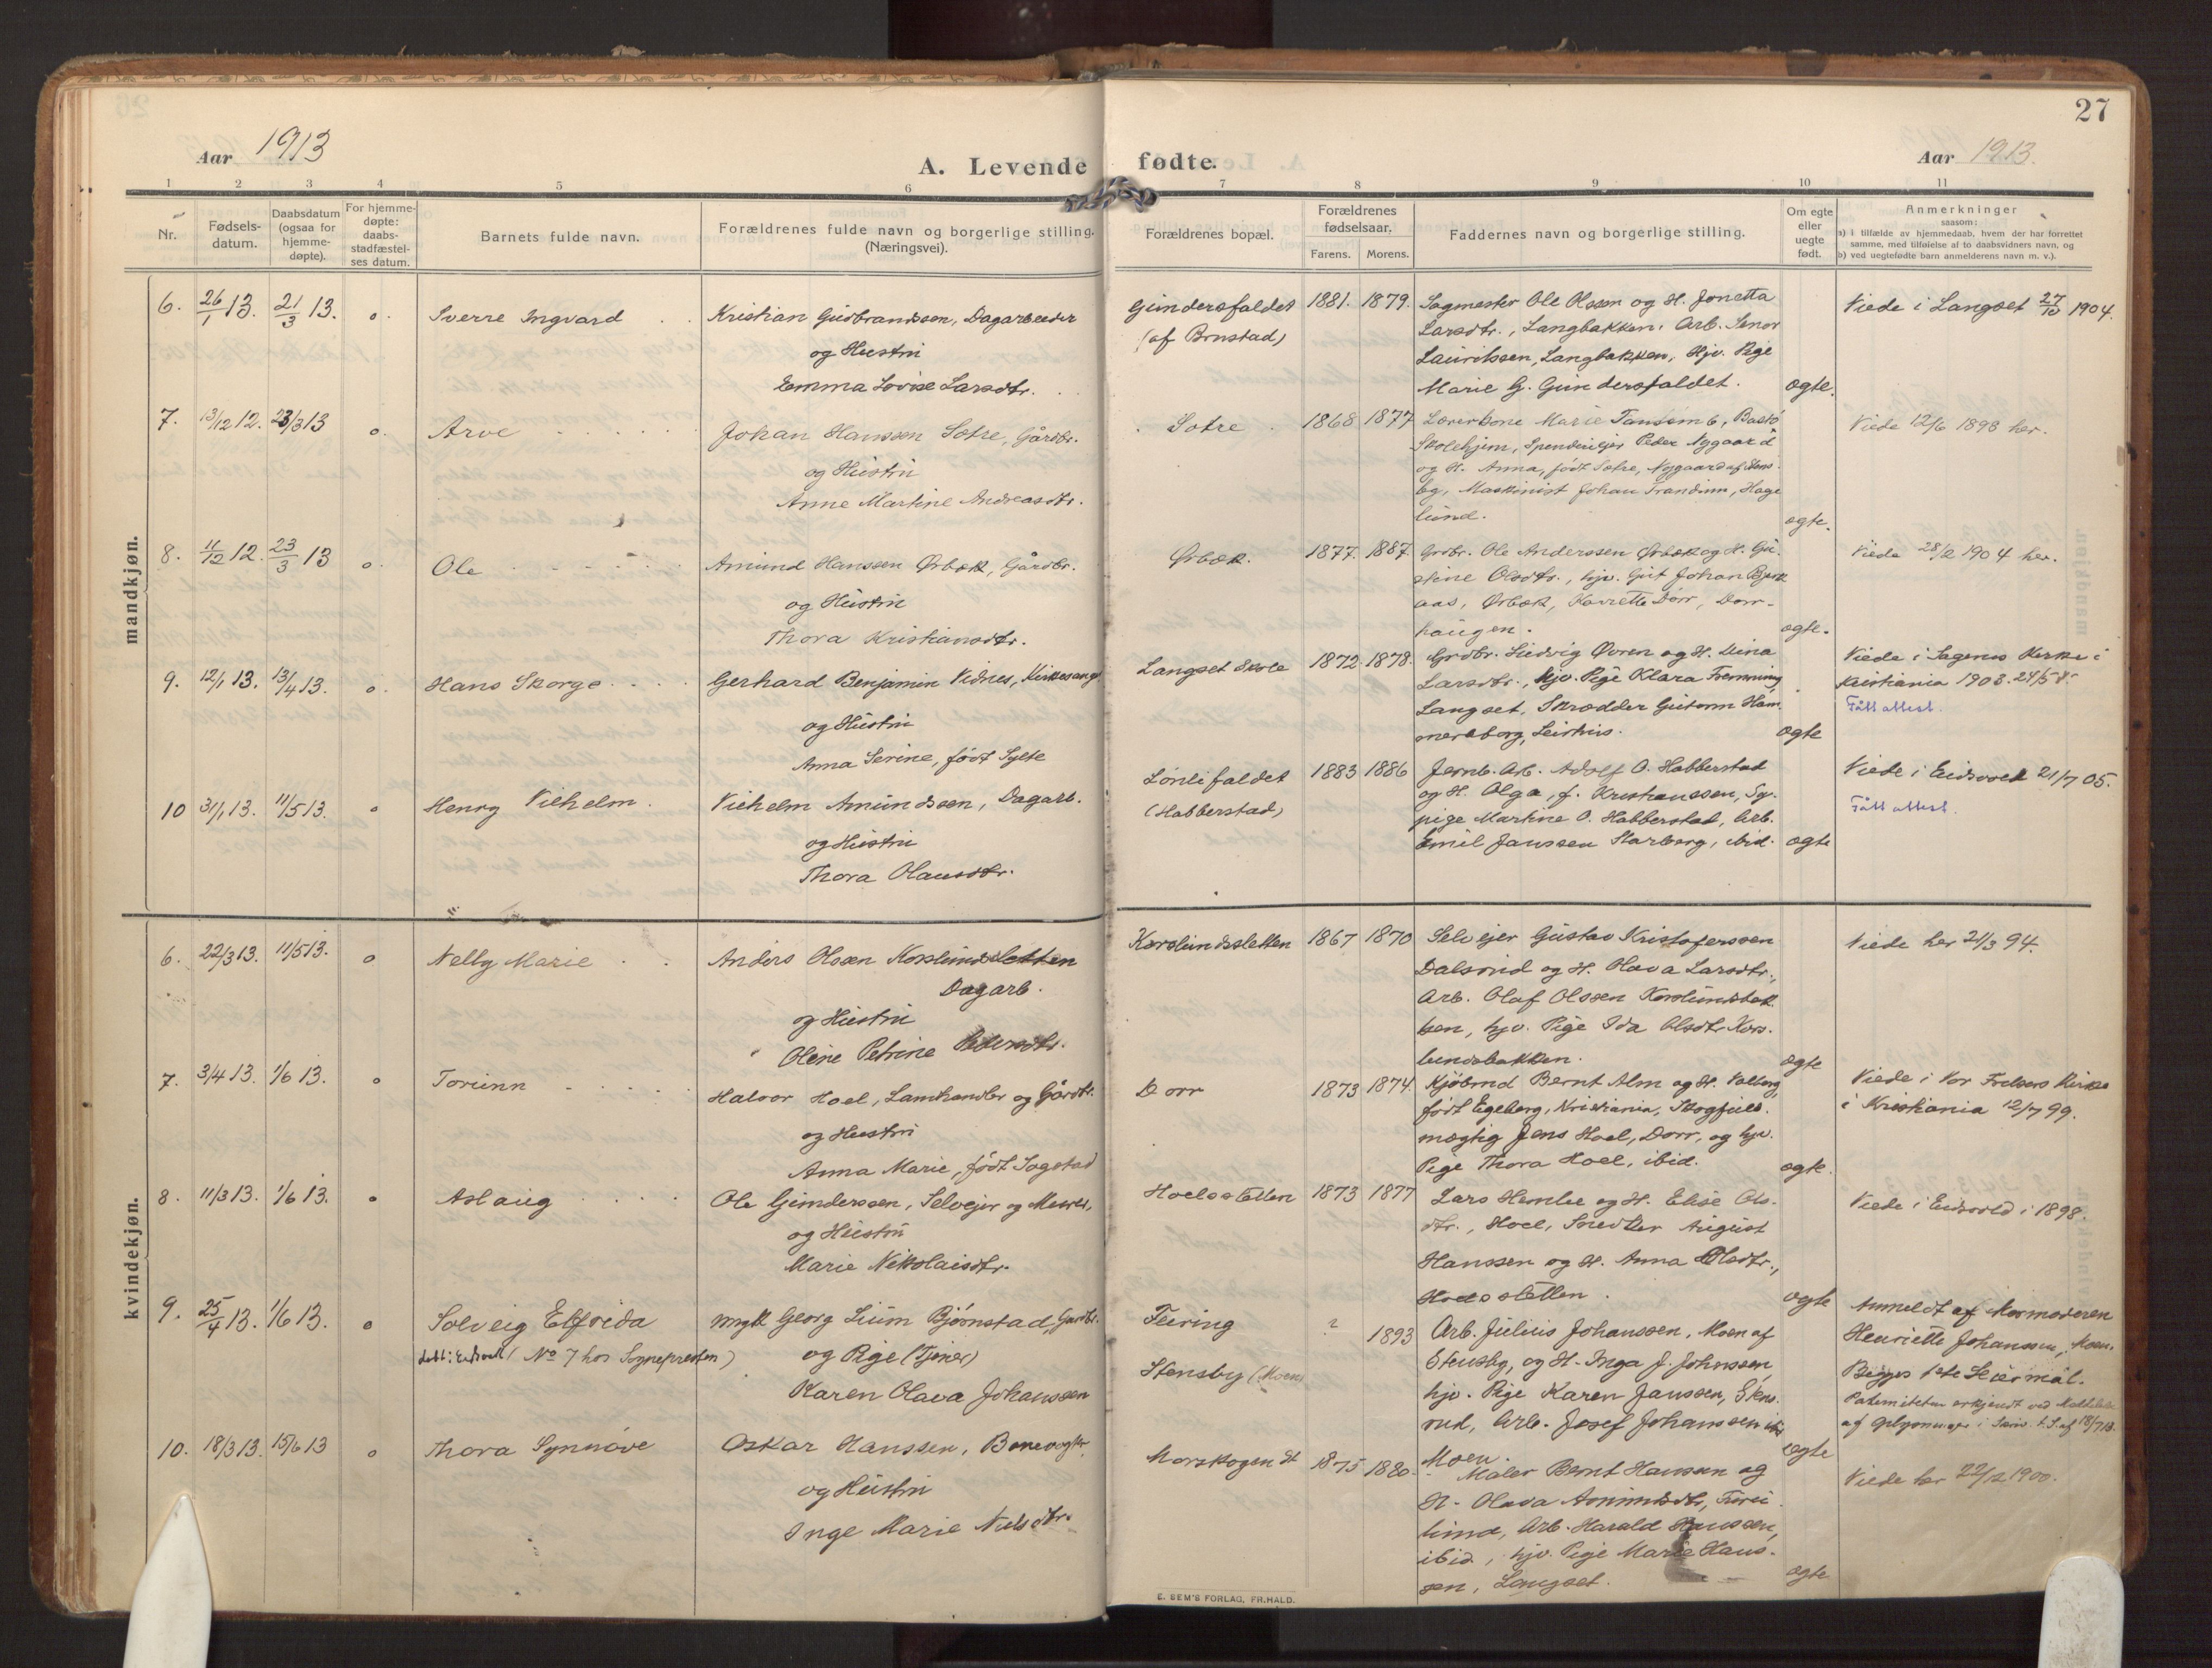 27
Aar 1913
A. Levende fødte.
Aar 1913.
1 2 3 4 5 6 7 8 9 10 11
Nr.
Fødsels-
datum.
Daabsdatum
(ogsaa for
hjemme-
døpte).
For hjemme-
døpte:
daabs-
stadfæstel-
ses datum.
Barnets fulde navn.
Forældrenes fulde navn og borgerlige stilling.
(Næringsvei).
Forældrenes bopæl.
Forældrenes
fødselsaar.
Farens. Morens.
Faddernes navn og borgerlige stilling.
Om egte
eller
uegte
født.
Anmerkninger
saasom:
a) i tilfælde av hjemmedaab, hvem der har forrettet
samme, med tilføielse af to daabsvidners navn, og
b) ved uegtefødte barn anmelderens navn m. v.).
mandkjøn.
6. 26/1 13. 21/3 13. o. Sverre Ingvard
Kristian Gudbrandsen, Dagarbeider
og Hustru
Emma Lovise Larsdtr.
Gundersfaldet
(af Brustad)
1881. 1879.
Sagmester Ole Olsen og H. Jonetta
Larsdtr., Langbakken, Arb.
Lauritssen, Langbakken, Hjv. Pige
Marie G. Gundersfaldet.
ægte.
Viede i Langset 27/10 1904.
7. 13/12 12. 23/3 13 o. Arve
Johan Hanssen Sætre, Gårdbr.
og Hustru
Anne Martine Andreasdtr.
Sætre
1868 1877
Lærerkone Marie, Bastø
Skolehjem, Peder Nygaard
og H. Anna, født Sætre, Nygaard af Stens-
by, Maskinist Johan Trandum, Hage
lund.
ægte.
Viede 12/6 1898 her.
8. 11/12 12. 23/3 13 o. Ole
Amund Hanssen Ørbæk, Gårdbr.
og Hustru
Thora Kristiansdtr.
Ørbæk.
1877. 1887.
Grdbr. Ole Anderssen Ørbæk og H. Gu-
stine Olsdtr., hjv. Gut Johan Bjerk
aas, Ørbæk, Dorr, Dorr-
haugen.
ægte.
Viede 28/2 1904 her.
9. 12/1 13. 13/4 13. o. Hans Skorge
Gerhard Benjamin Vidnes, Kirkesang.
og Hustru
Anna Serine, født Sylte
Langset Skole
1872. 1878.
Grdbr. Ludvig Øvren og H. Lina
Larsdtr., hjv. Pige Klara Fremming,
Langset, Skrædder Guttorm Ham-
mersborg, Leirhus.
ægte
Viede i Sagenes Kirke i
Kristiania 1903. 24/5
Fått attest.
10 31/1 13. 11/5 13. o Henry Vilhelm.
Vilhelm Amundsen, Dagarb.
og Hustru
Thora Olausdtr.
Lønlifaldet
(Habberstad)
1883 1886
Jernb. Arb. Adolf O. Habberstad
og H. Olga, f. Kristianssen, Sy-
pige Martine O. Habberstad, Arb.
Emil Janssen Starberg, ibid.
ægte
Viede i Eidsvold 21/7 05.
Fått attest.
kvindekjøn.
6. 22/3 13. 11/5 13. o Nelly Marie
Anders Olsen Korslundsletten
Dagarb.
og Hustru
Oline Petrine Pedersdtr.
Korslundsletten
1867 1870
Selveier Gustav Kristoferssen
Dalsrud og H. Olava Larsdtr.,
Arb. Olaf Olssen Korslundsbak
ken, hjv. Pige Ida Olsdtr. Kors-
lundsbakken.
ægte
Viede her 21/3 94.
7. 3/4 13. 1/6 13. o Torunn
Halvor Hoel, Landhandler og Gårdbr.
og Hustru
Anna Marie, født Sogstad
Dorr
1873 1874.
Kjøbmd Bernt Alm og H. Valborg,
født Egeberg, Kristiania, Skogfuld-
mægtig Jens Hoel, Dorr, og hjv.
Pige Thora Hoel, ibid.
ægte.
Viede i Vor Frelsers Kirke
i Kristiania 12/7 99.
8 11/3 13. 1/6 13. o Aslaug
Ole Gunderssen, Selveier og Murer,
og Hustru
Marie Nikolaisdtr.
Hoelsstetten
1873 1877
Lars Hemlie og H. Elise Ols-
dtr., Hoel, Snedker August
Hanssen og H. Anna Olsdtr.,
Hoelsstetten.
ægte
Viede i Eidsvold i 1898.
9. 25/4 13. 1/6 13. o Solveig Elfrida
døbt i Eidsvold (No 7 hos Sognepresten)
Ungk. Georg Lium Bjørnstad, Gårdbr.
og Pige (Tjener)
Karen Olava Johanssen
Feiring
Stensby (Moen)
? 1893
Arb. Julius Johanssen, Moen af
Stensby, og H. Inga J. Johnssen
hjv. Pige Karen Janssen, Stens-
rud, Arb. Josef Johanssen ibid
Moen.
uægte
Anmeldt af Mormoderen
Henriette Johanssen, Moen.
Begges 1ste Leiermål.
Paterniteten erkjendt ved
af 18/7 13.
10. 18/3 13. 15/6 13 o Thora Synnøve
Oskar Hanssen, Banevogter
og Hustru
Inge Marie Nielsdtr.
Morskogen St
1875 1880.
Maler Bernt Hanssen og
H. Olava Amundsdtr, Furu-
lund, Arb. Harald Hanssen,
ibid., hjv. Pige Marie Hans-
sen, Langset.
ægte
Viede her 22/12 1900.
E. SEM'S FORLAG, FR.HALD.